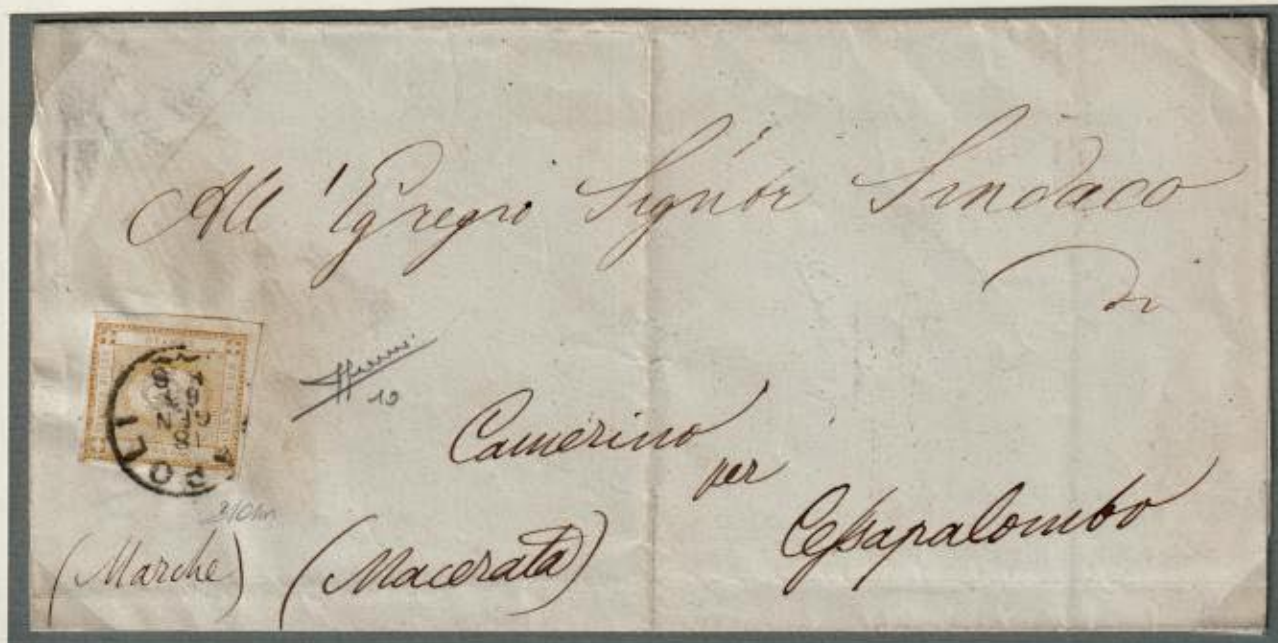 All'Egregio Signor Sindaco
di
Camerino
per
Cessapalombo
(Marche) (Macerata)
10